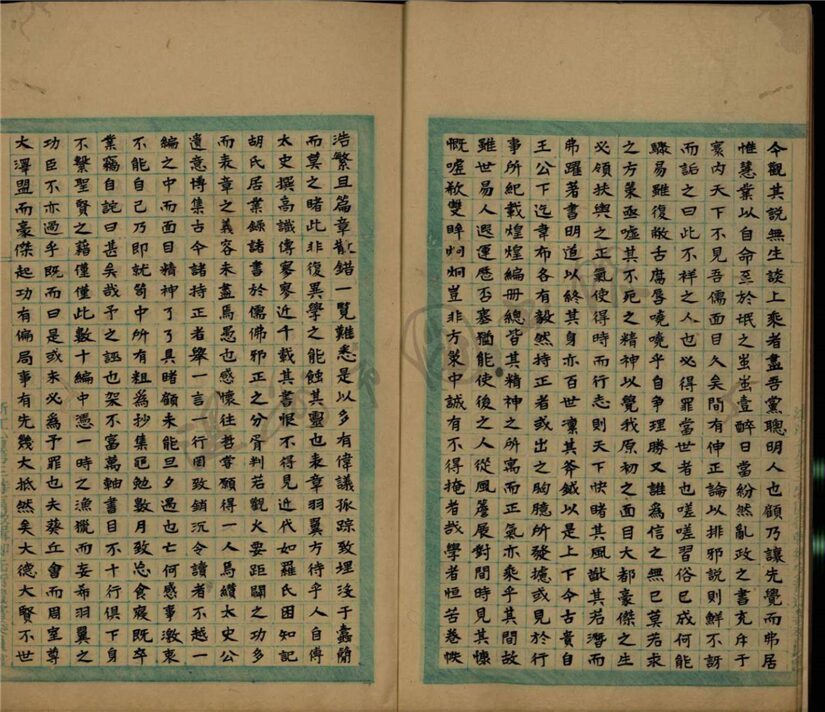 今觀其說無生談上乘者盡吾黨聰明人也顧乃讓先覺而弗居
惟慧業以自命至於氓之蚩蚩壹醉日當紛然亂政之書充斥于
寰內天下不見吾儒面目久矣間有伸正論以排邪說則鮮不訝
而詬之曰此不祥之人也必得罪當世者也嗟嗟習俗已成何能
驟易雖復敝舌腐唇嘵嘵乎自爭理勝又誰為信之無已莫若求
之方策亟噓其不死之精神以覺我原初之面目大都豪傑之生
必領扶輿之正氣使得時而行志則天下快睹其風猷其若潛而
弗躍著書明道以終其身亦百世凜其斧鉞以是上下今古貴自
王公下迄韋布各有毅然持正者或出之胸臆所發攄或見於行
事所紀載煌煌編冊總皆其精神之所寓而正氣亦乘乎其間故
雖世易人遐運厄否塞猶能使後之人從風簷展對間時見其慷
慨噓欷雙眸炯炯豈非方策中誠有不得掩者哉學者恒苦卷帙
浩繁且篇章散錯一覽難悉是以多有偉議孤踪致埋沒于蠹簡
而莫之睹此非復異學之能蝕其靈也表章羽翼方待乎人自傅
太史撰高識傳寥寥近千載其書恨不得見近代如羅氏困知記
胡氏居業錄諸書於儒佛邪正之分胥判若觀火要距闢之功多
而表章之義容未盡焉愚也感懷往哲嘗願得一人焉纘太史公
遺意博集古今諸持正者舉一言一行罔致銷沉令讀者不越一
編之中而面目精神了了具睹顧未能旦夕遇也亡何感事激衷
不能自己乃即就笥中所有粗為抄集黽勉數月致忘食寢既卒
業竊自說曰甚矣哉予之誣也架不富萬軸書目不十行俱下身
不繫聖賢之藉僅僅此數十編中憑一時之漁獵而妄希羽翼之
功臣不亦過乎既而曰是或未必為予罪也夫葵丘會而周室尊
大澤盟而豪傑起功有偏局事有先幾大抵然矣大德大賢不世